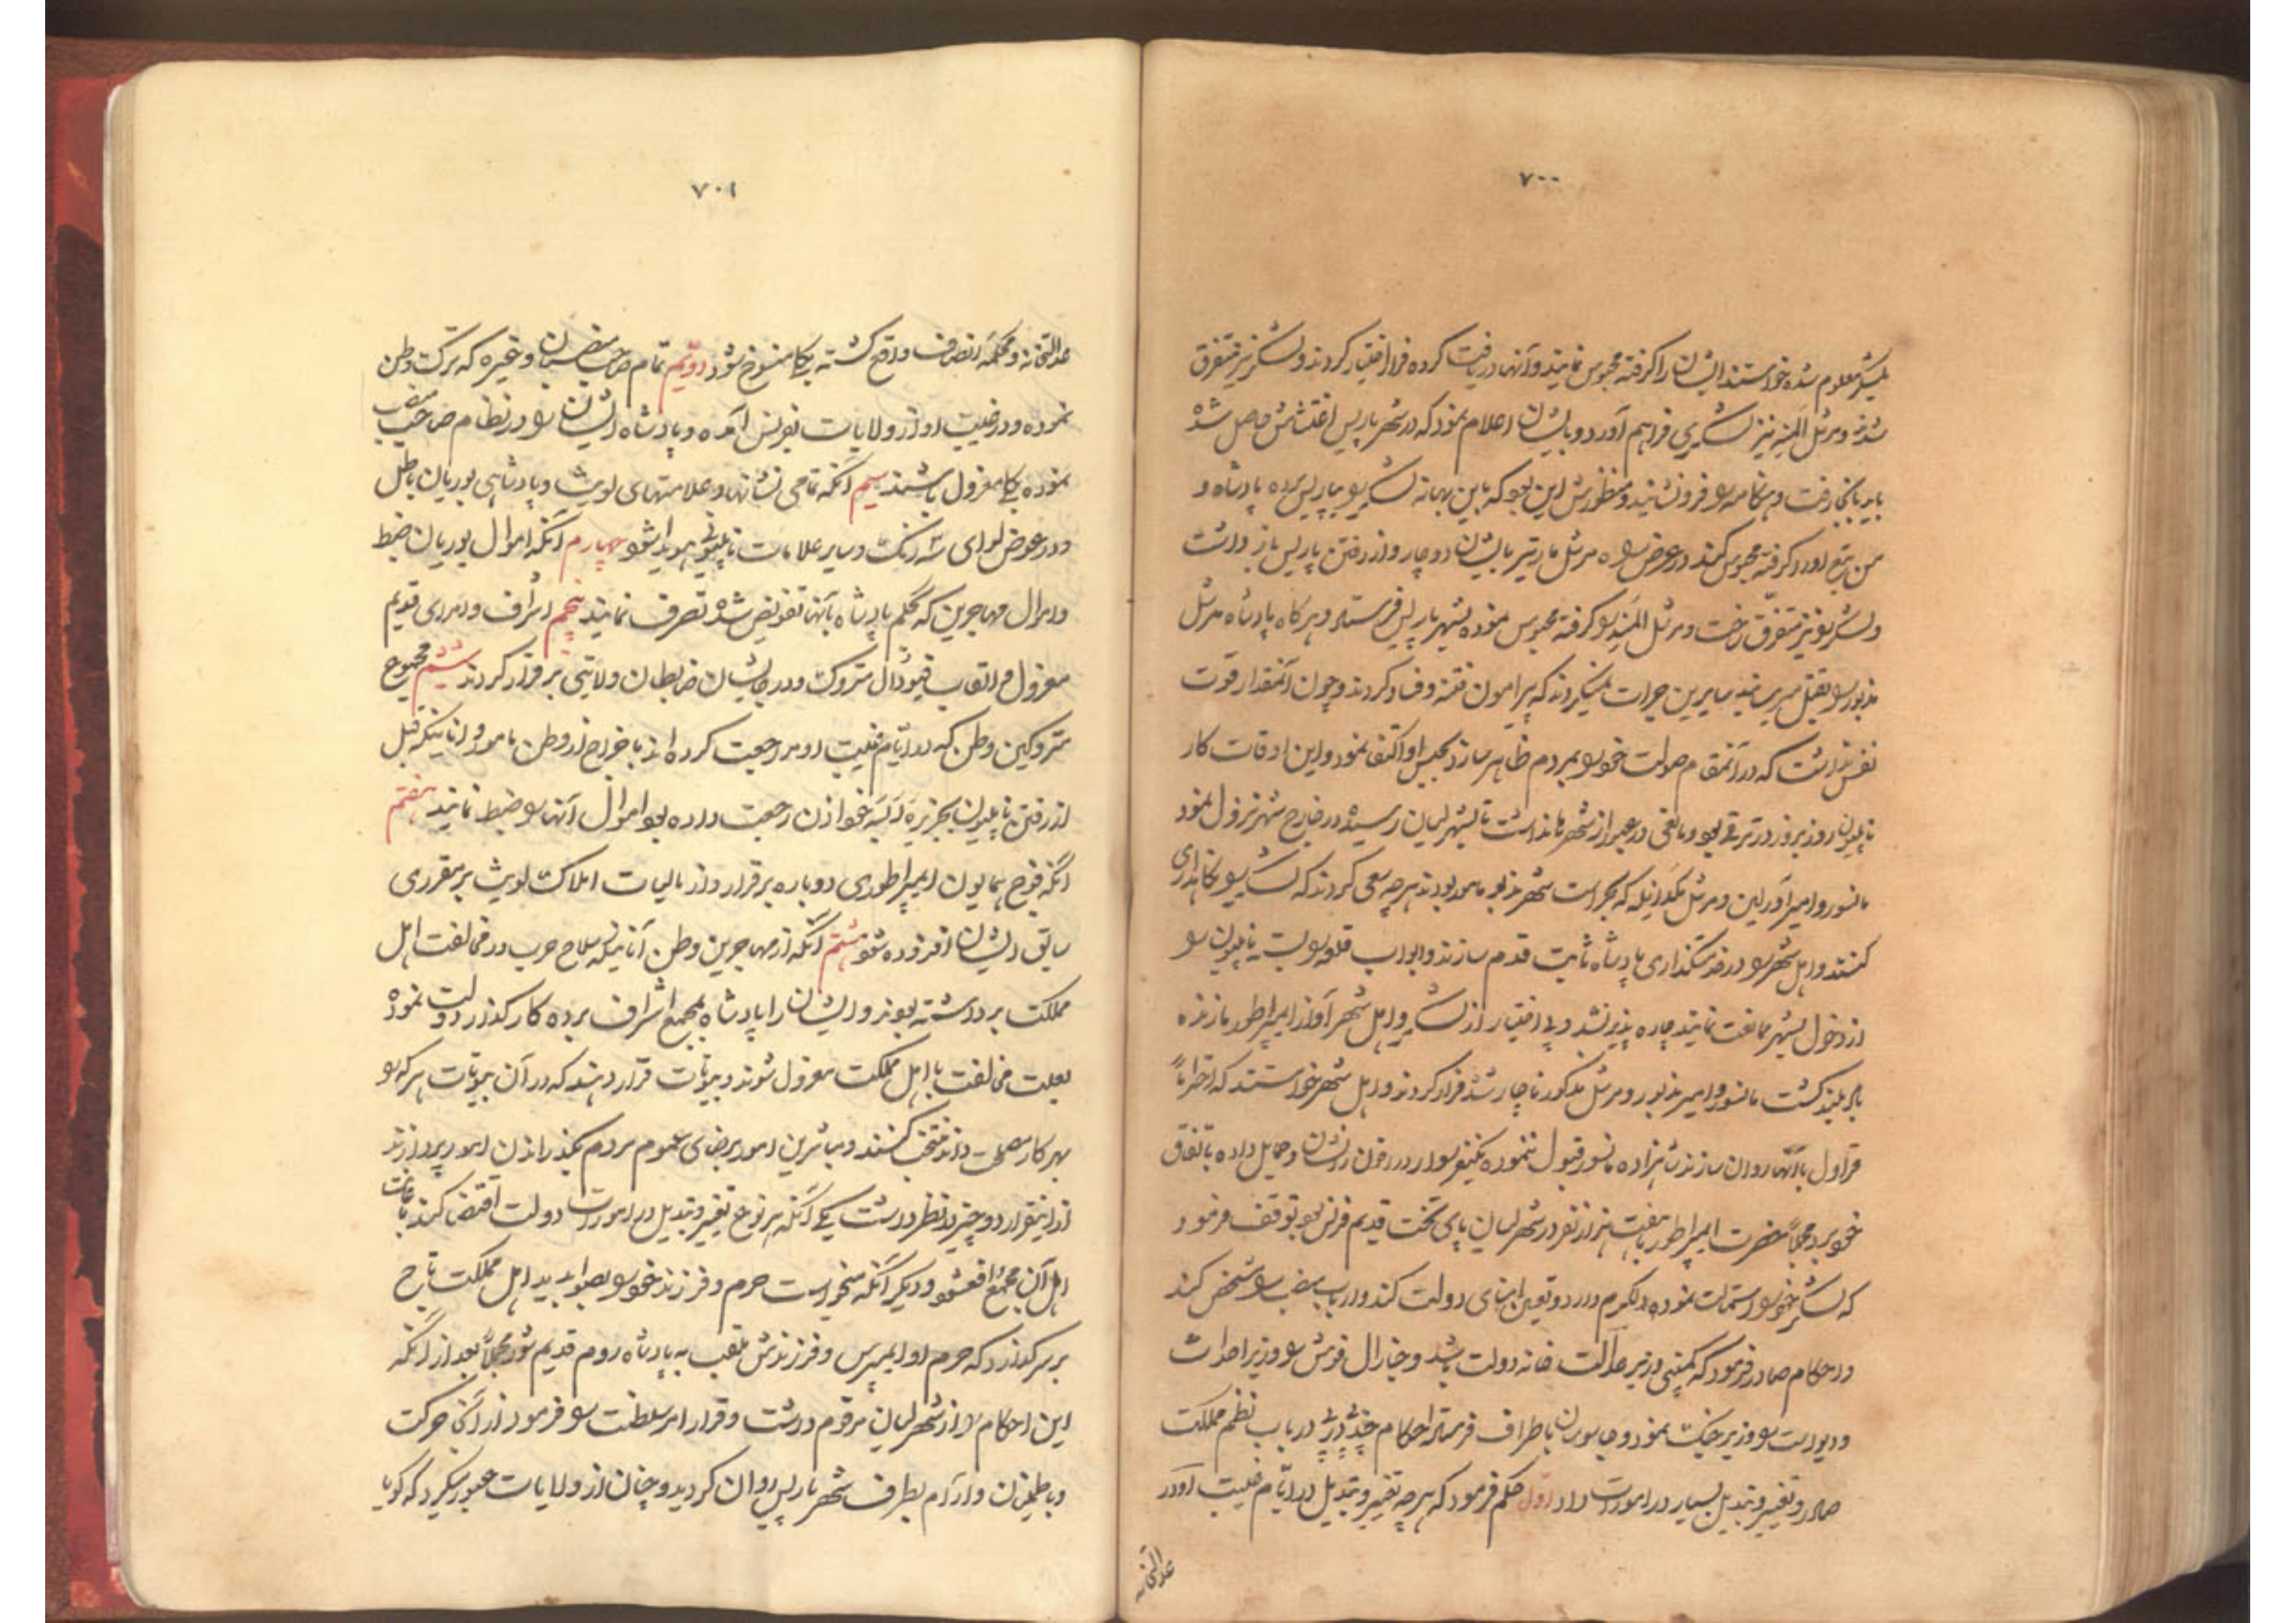 ۷۰۰
معلوم شده خواستند ایشان را گرفته محبوس نمایند و آنها دریافت کرده فرار اختیار کردند و لشکر نیز متفرق
شدند و مرشل نیز لشکری فراهم آورد و بایشان اعلام نمود که در شهر پاریس اغتشاش حاصل شده
باید بانجا رفت و هنگامه را فرو نشانید و منظورش این بود که باین بهانه لشکر را بپاریس برده پادشاه و
گرفته محبوس کند در عرض راه مرشل مارتیر بایشان دوچار و از رفتن پاریس باز داشت
و لشکر را نیز متفرق ساخت و مرشل را گرفته محبوس نموده بشهر پاریس فرستاد و هرگاه پادشاه مرشل
مذبور را بقتل میرسانید سایرین جرات نمیکردند که پیرامون فتنه و فساد گردند و چون آنمقدار قوت
نفس نداشت که در آنمقام صولت خود را بمردم ظاهر سازد بحبس او اکتفا نمود و این اوقات کار
ناپلیون روز بروز در ترقی بود و مانعی در عبور از شهرها نداشت تا بشهر لیان رسیده در خارج شهر نزول نمود
مانسور و امیر آورلین و مرشل مکدانیله که بحراست شهر مذبور مامور بودند هرچه سعی کردند که لشکر را نگاهداری
کنند و اهل شهر را در خدمتگذاری پادشاه ثابت قدم سازند و ابواب قلعه را بست ناپلیون را
از دخول بشهر ممانعت نمایند چاره پذیر نشد و بی اختیار از لشکر و اهل شهر آواز ایمپراطور ما زنده
باد بلند گشت مانسور و امیر مذبور و مرشل مذکور ناچار شده فرار کردند و اهل شهر خواستند که احتراماً
قراول بآنها روان سازند شاهزاده مانسور قبول ننموده یکنفر سوار در اخوان نشان و حمایل داده باتفاق
خود برد مجملاً حضرت ایمپراطور با هفت هزار نفر در شهر لیان پای تخت قدیم فرنس بود توقف فرمود
که لشکر خود را استمالت نموده دلگرم دارد و تعین امنای دولت کند و ارباب منصب را مشخص کند
و احکام صادر فرمود که کمپنی وزیر عدالت خانه دولت باشد و جنارال فوش را وزیر احداث
و دیوست را وزیر جنگ نمود و جاسوسان باطراف فرستاد احکام چند در باب نظم مملکت
صادر و تغییر و تبدیل بسیار در امورات داد اوّل حکم فرمود که هرچه تغییر و تبدیل در ایام غیبت او در
عدالتخانه
۷۰۱
عدالتخانه و محکمه انصاف واقع گشته یکجا منسوخ شود دویم تمام صاحب منصبان و غیره که ترک وطن
نموده و در غیبت او از ولایات بفرنس آمده و پادشاه ایشان را در نظام صاحب منصب
نموده یکجا معزول باشند سیم آنکه تمامی نشانها و علامتهای لویث و پادشاهی بوربان باطل
و در عوض لوای سه رنگ و سایر علامات ناپلیونی هویدا شود چهارم آنکه اموال بوربان ضبط
و اموال مهاجرین که بحکم پادشاه بآنها تفویض شده تصرف نمایند پنجم اشراف و امرای قدیم
معزول و القاب فیودال متروک و در جایشان ضابطان ولایتی برقرار کردند ششم مجموع
متروکین وطن که در ایام غیبت او مراجعت کرده اند باخراج از وطن مامور و انانیکه قبل
از رفتن ناپلیون بجزیره البه خود اذن رجعت داده بود اموال آنها را ضبط نمایند هفتم
آنکه فوج همایون ایمپراطوری دوباره برقرار و از مالیات املاک لویث بر مقرری
سابق ایشان افزوده شود هشتم آنکه از مهاجرین وطن آنانیکه سلاح حرب در مخالفت اهل
مملکت برداشته بودند و ایشان را پادشاه بمجمع اشراف برده کارگذار دولت نموده
بعلت مخالفت با اهل مملکت معزول شوند و بیوتات قرار دهند که در آن بیوتات هر که را
بهر کار مصلحت دانند منتخب کنند و مباشرین امور برضای عموم مردم بگذراندن امور پردازند
از اینقرار دو چیز در نظر داشت یکی آنکه هر نوع تغییر و تبدیل در امورات دولت اقتضا کند باعانت
اهل آن مجمع واقع شود و دیگر آنکه میخواست حرم و فرزند خود را بصوابدید اهل مملکت تاج
بر سر گذارد که حرم او ایمپرس و فرزندش ملقب به پادشاه روم قدیم شود مجملاً بعد از آنکه
این احکام را از شهر لیان مرقوم داشت و قرار امر سلطنت را فرمود از آنجا حرکت
و باطمینان و آرام بطرف شهر پاریس روان گردید و چنان از ولایات عبور میکرد که گویا